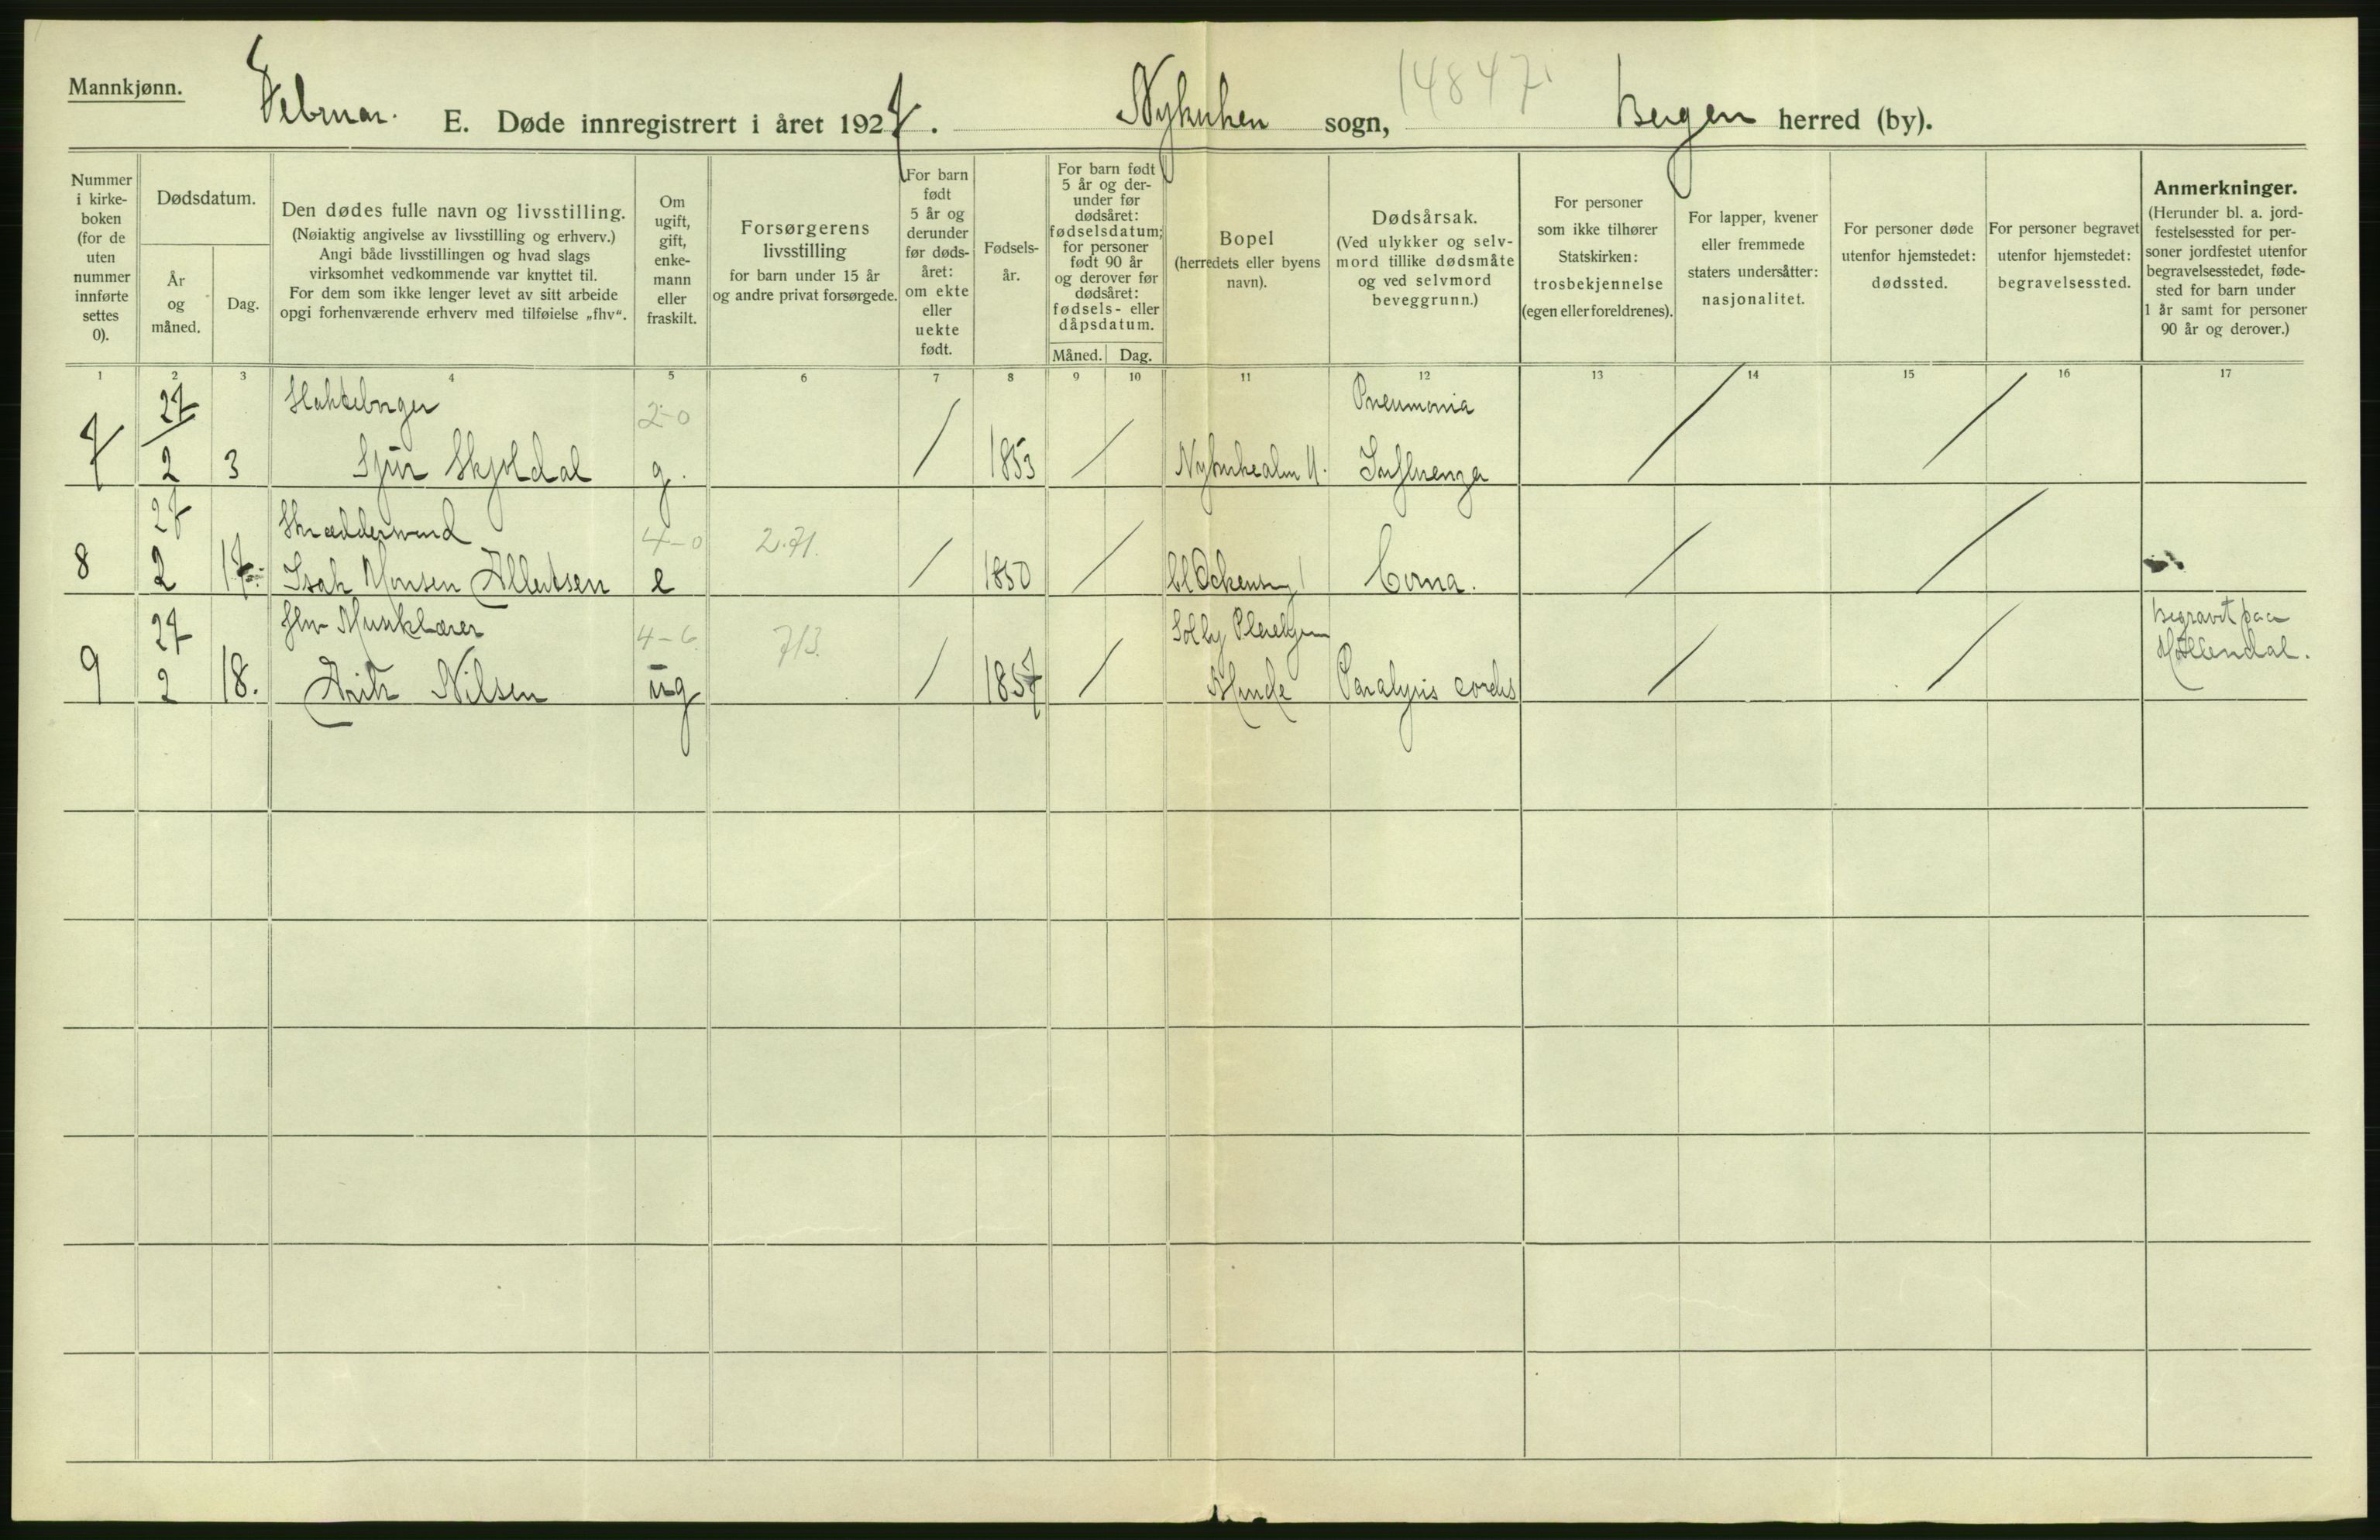 Mannkjønn.
Februar. E. Døde innregistrert i året 1927. Nykirken sogn, 14847 Bergen herred (by).
Nummer i kirkeboken (for de uten nummer innførte settes 0).
Dødsdatum.
År og måned.
Dag.
Den dødes fulle navn og livsstilling.
(Nøiaktig angivelse av livsstilling og erhverv.)
Angi både livsstillingen og hvad slags
virksomhet vedkommende var knyttet til.
For dem som ikke lenger levet av sitt arbeide
opgi forhenværende erhverv med tilføielse „fhv“.
Om ugift, gift, enke-mann eller fraskilt.
Forsørgerens
livsstilling
for barn under 15 år
og andre privat forsørgede.
For barn født 5 år og derunder før døds-året: om ekte eller uekte født.
Fødsels-år.
For barn født 5 år og der-under før dødsåret: fødselsdatum; for personer født 90 år og derover før dødsåret: fødsels- eller dåpsdatum.
Måned. Dag.
Bopel
(herredets eller byens
navn).
Dødsårsak.
(Ved ulykker og selv-
mord tillike dødsmåte
og ved selvmord
beveggrunn.)
For personer
som ikke tilhører
Statskirken:
trosbekjennelse
(egen eller foreldrenes).
For lapper, kvener
eller fremmede
staters undersåtter:
nasjonalitet.
For personer døde
utenfor hjemstedet:
dødssted.
For personer begravet
utenfor hjemstedet:
begravelsessted.
Anmerkninger.
(Herunder bl. a. jord-
festelsessted for per-
soner jordfestet utenfor
begravelsesstedet, føde-
sted for barn under
1 år samt for personer
90 år og derover.)
1 2 3 4 5 6 7 8 9 10 11 12 13 14 15 16 17
27 2-0 Pneumonia
7 2 3 Sjur Skjoldal g. / 1853 / Influenza / /
27 4-0 2.71.
8 2 17. Isak Monsen Albertsen e / 1850 / Coma. / /
27 fhv Musiklærer 4-6 713. Solby Pleiehjem Begravet paa
9 2 18. Nilsen ug / 1857 / Minde Paralysis cordis / / Møllendal.